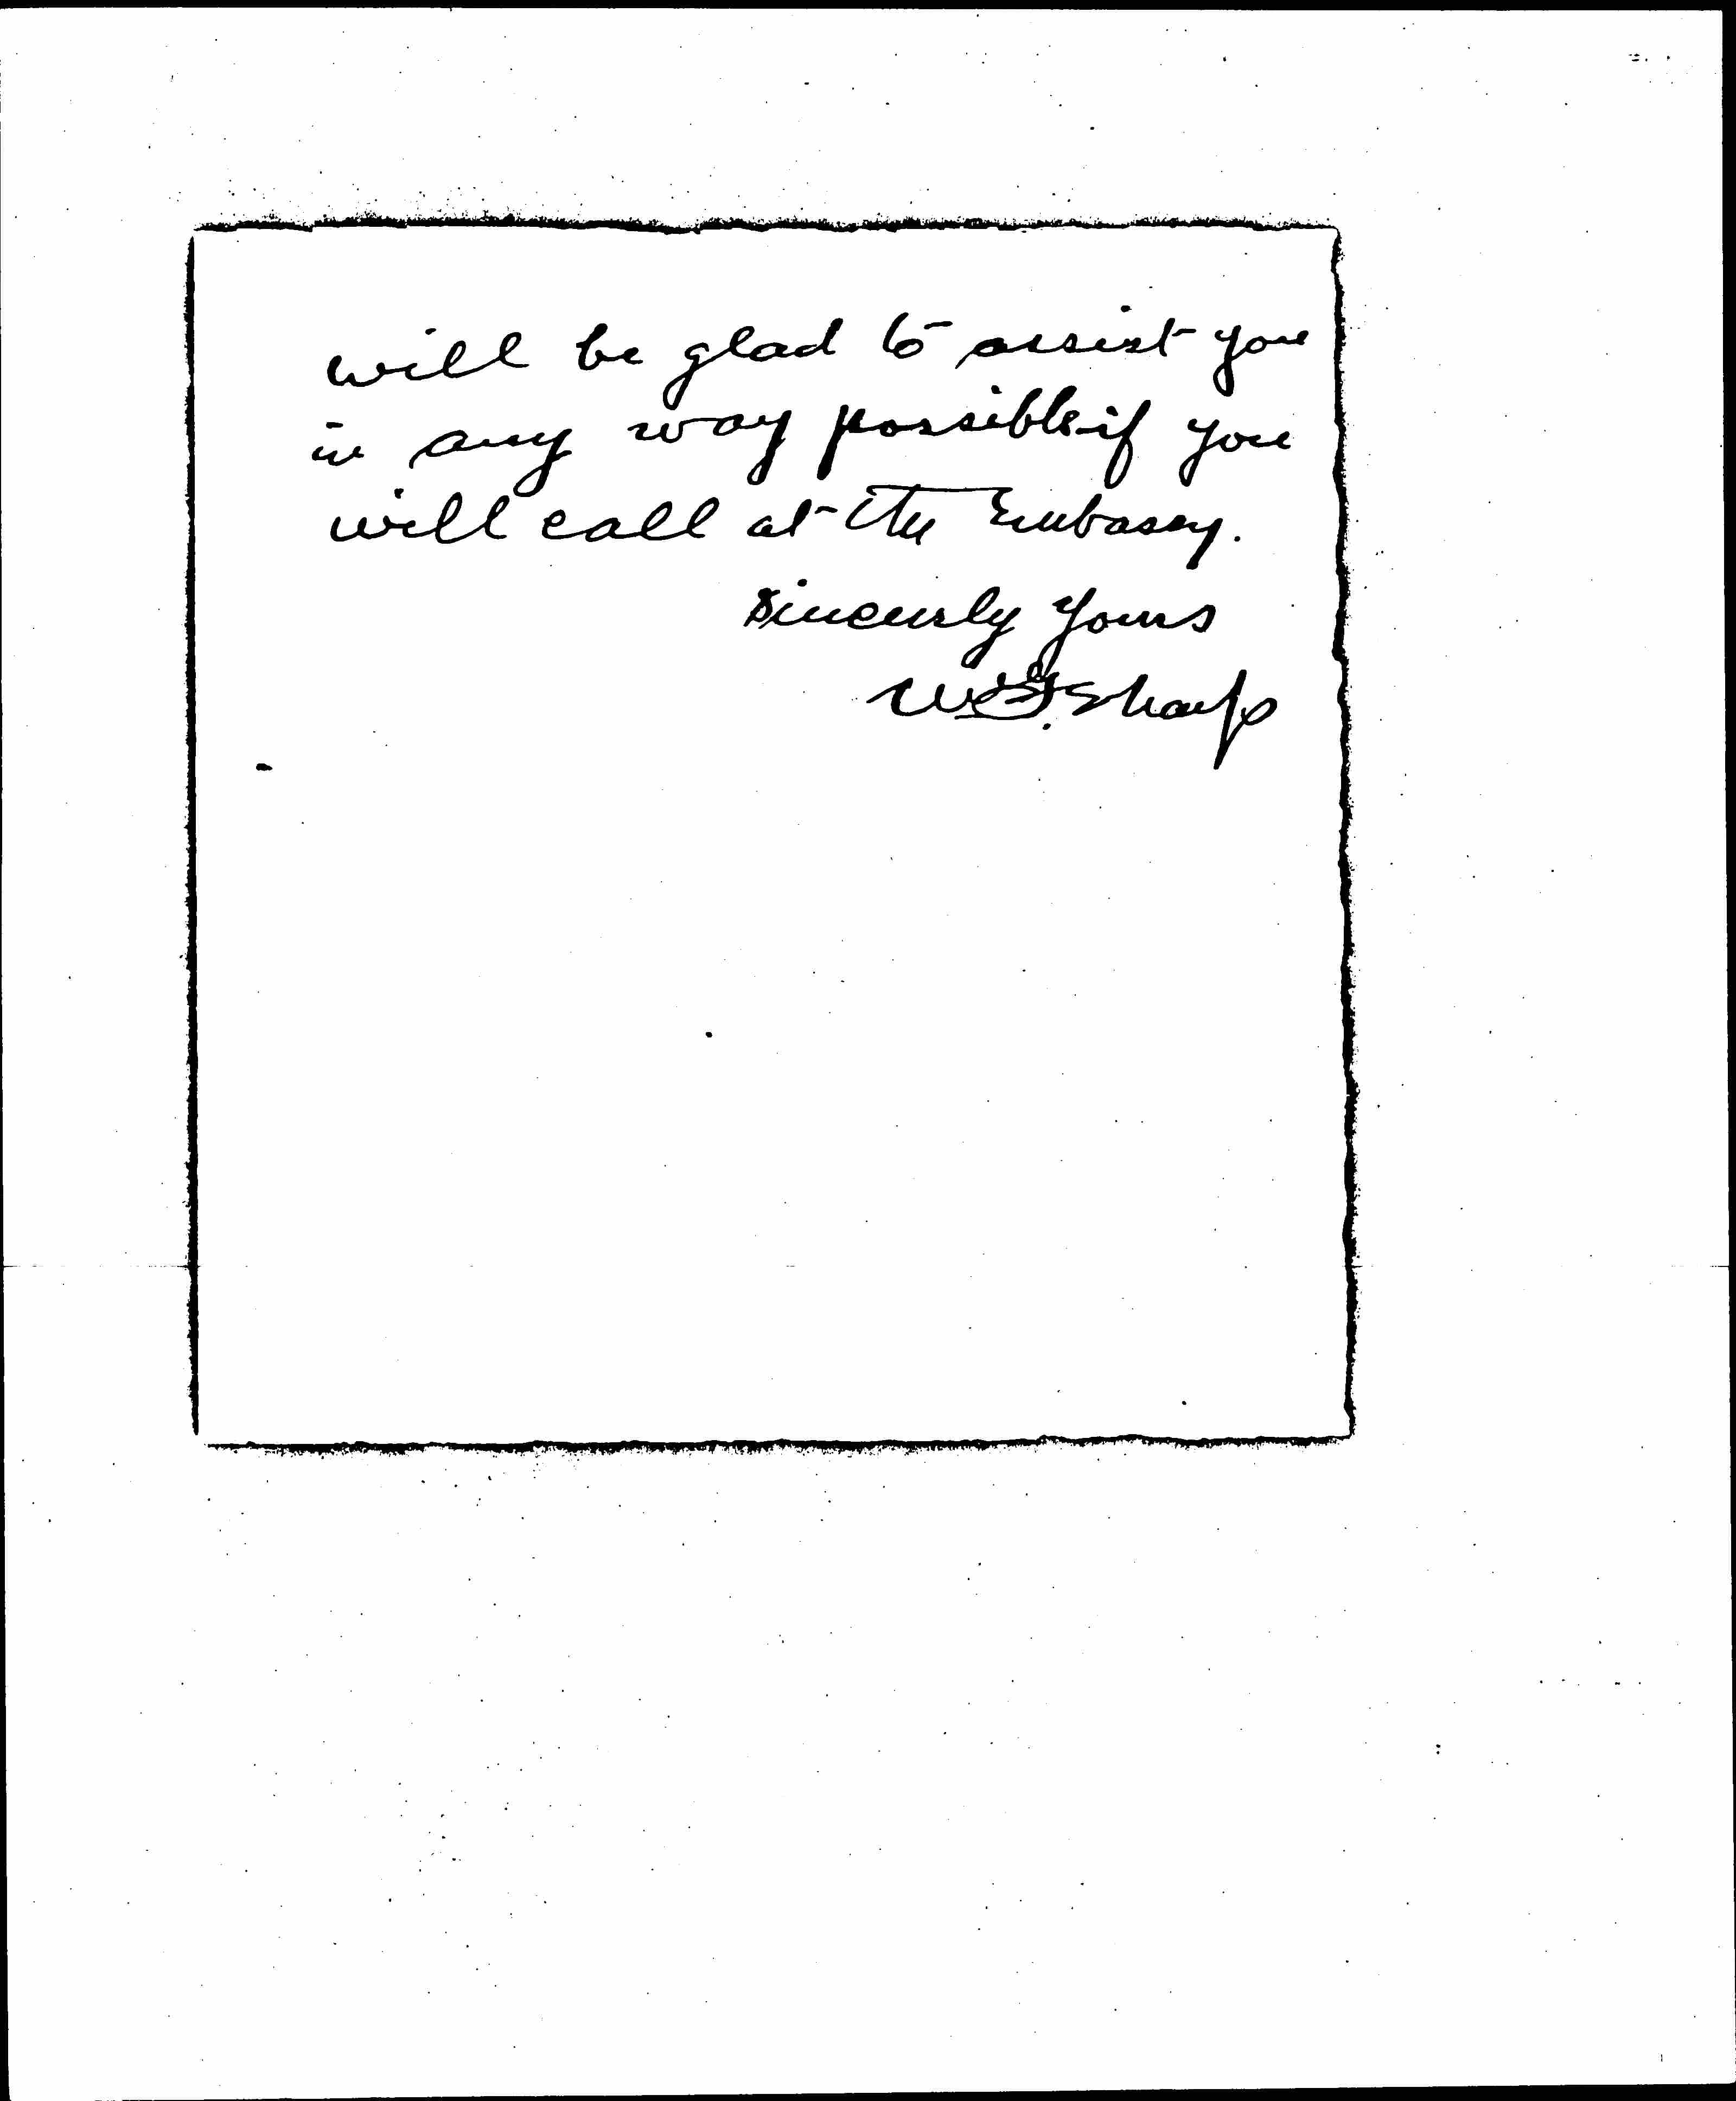 will be glad to assist you
in any way possible if you
will call at the Embassy.
Sincerely Yours
W. G. Sharp